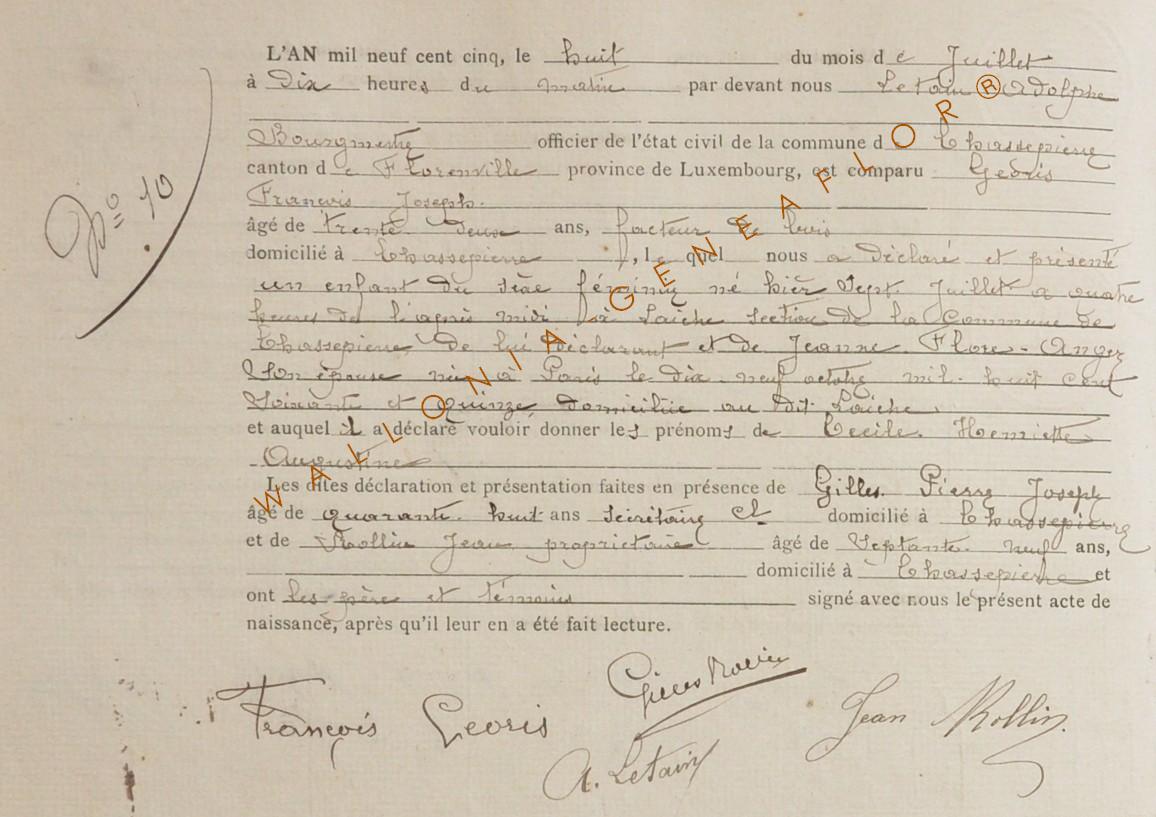 L'AN mil neuf cent cinq, le huit du mois de Juillet
à Dix heures du matin par devant nous Letain Adolphe
Bourgmestre officier de l'état civil de la commune d Chassepierre
canton de Florenville province de Luxembourg, est comparu Georis
François Joseph.
âgé de trente Deux ans, facteur de bois
domicilié à Chassepierre, lequel nous a déclaré et présenté
un enfant du sexe féminin né hier Sept Juillet a quatre
heures de l'après midi à Laiche section de la Commune de
Chassepierre De lui Déclarant et de Jeanne Flore
Son épouse née à Paris le Dix neuf octobre mil huit cent
Soixante et quinze, domiciliée au dit Laiche.
et auquel il a déclaré vouloir donner les prénoms de Cecile Henriette
Augustine
Les dites déclaration et présentation faites en présence de Gilles Pierre Joseph
âgé de quarante huit ans Sécrétaire et domicilié à Chassepierre
et de Rollin Jean propriétaire âgé de Septante neuf ans,
domicilié à Chassepierre et
ont les père et témoins signé avec nous le présent acte de
naissance, après qu'il leur en a été fait lecture.
No 10
François Georis
Gilles
Jean Rollin.
A. Letain
WALLONIA GENEAFLOR®